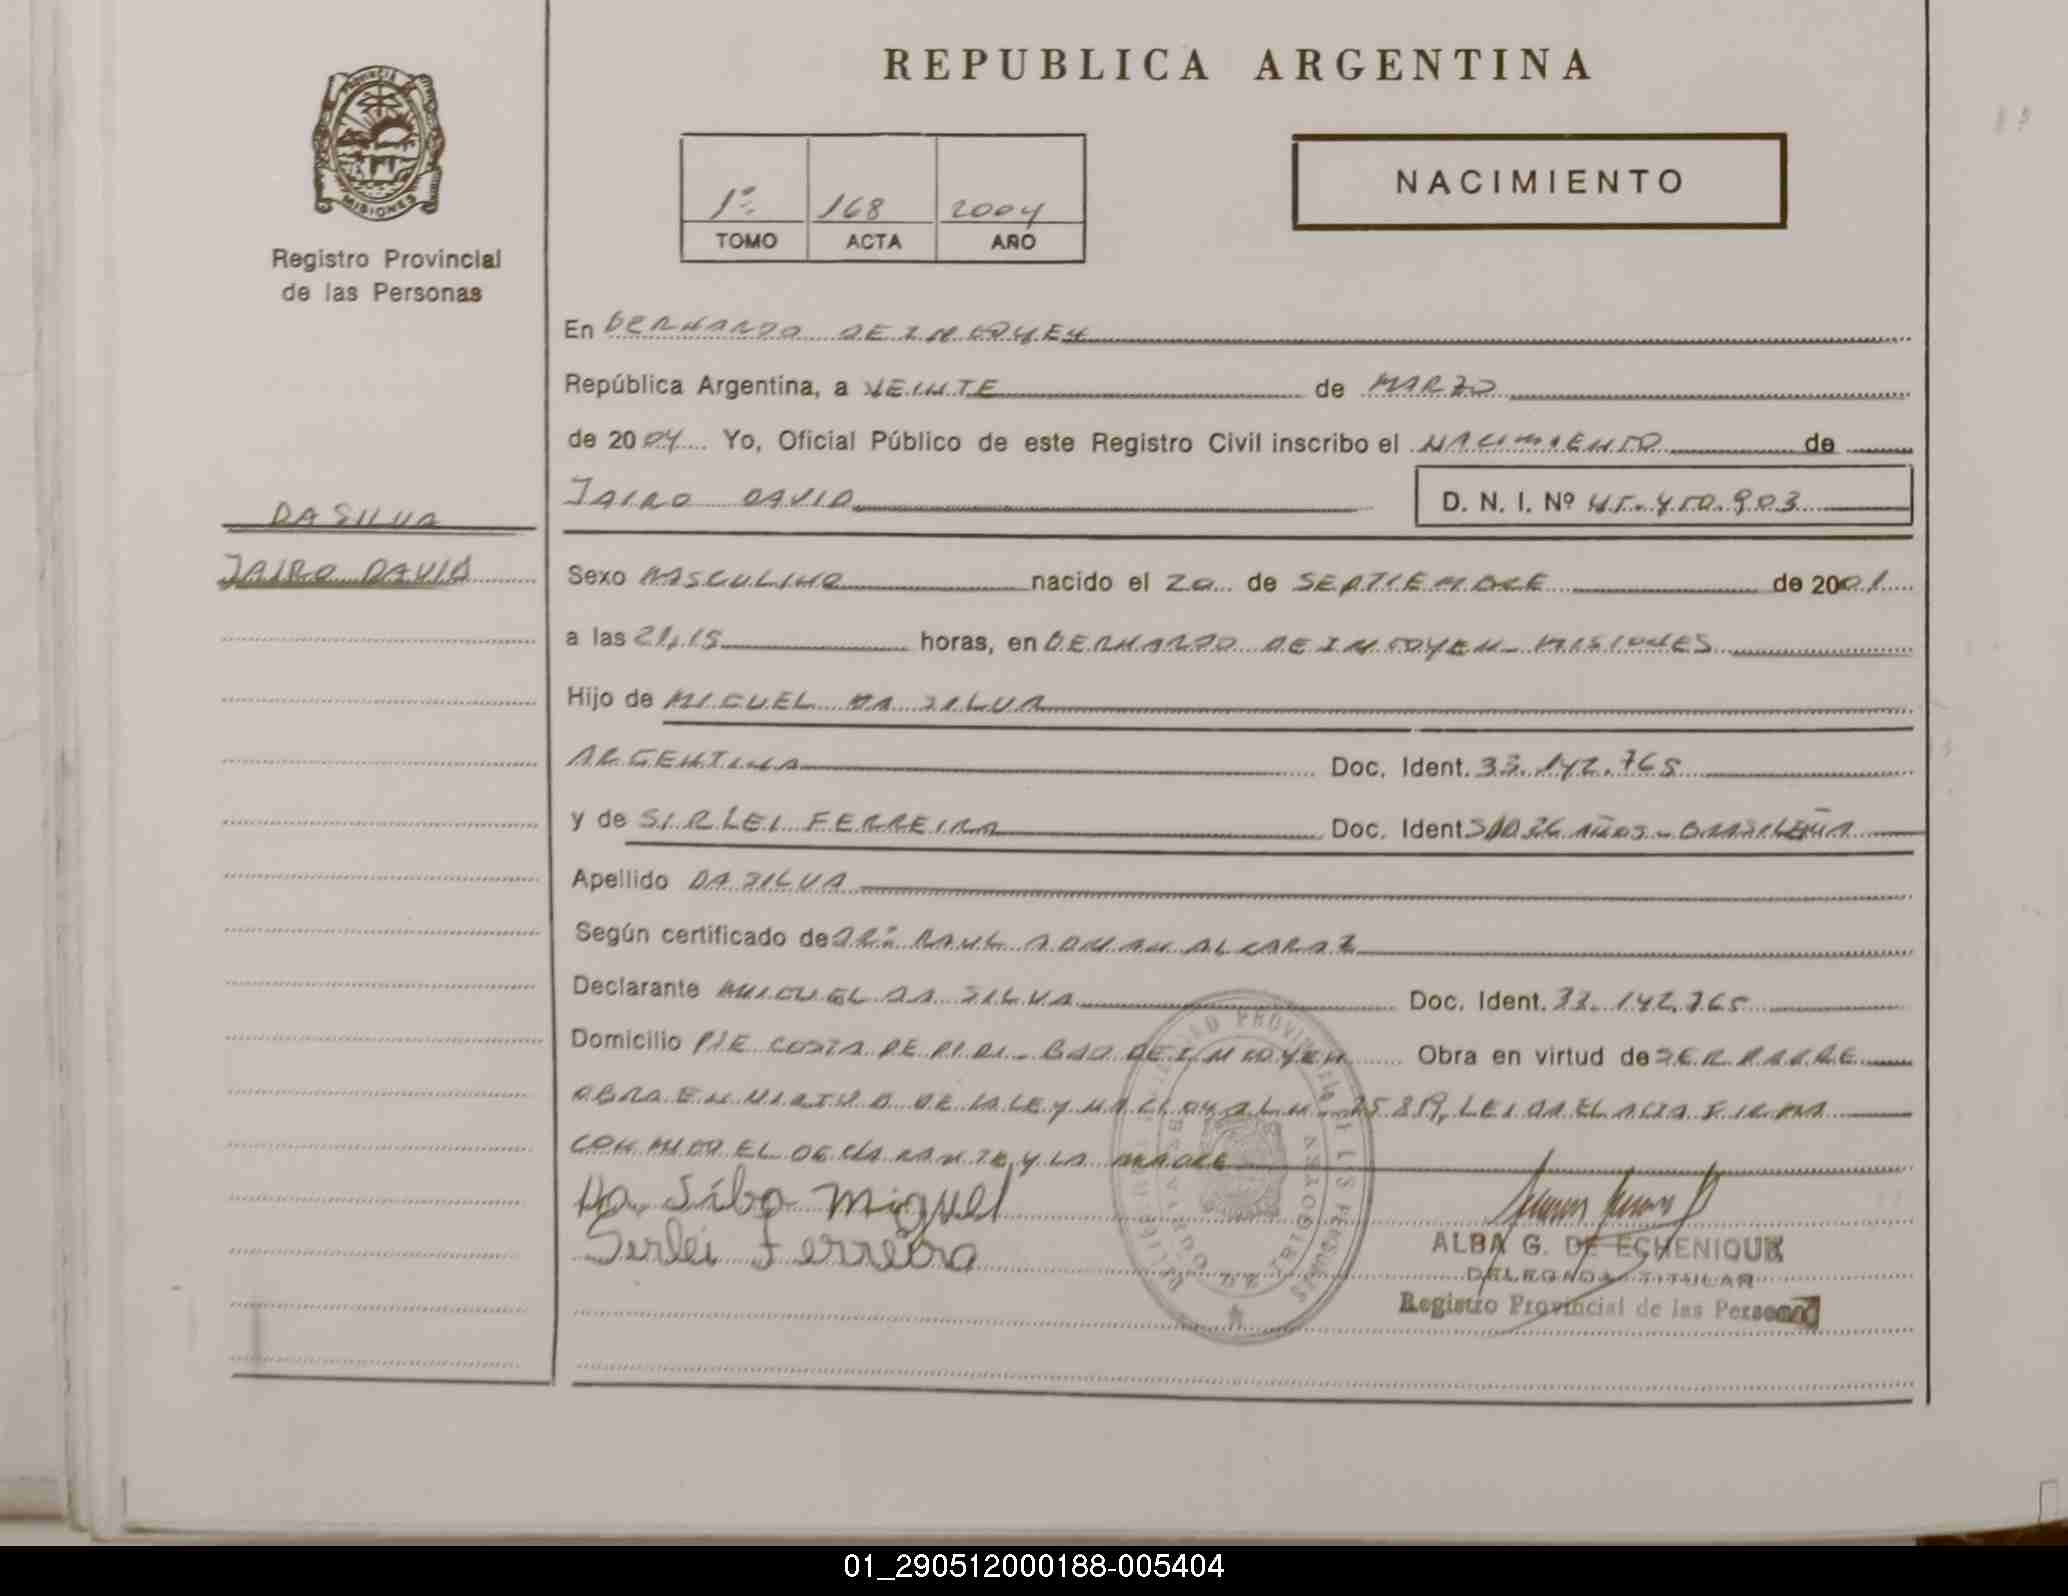 REPUBLICA ARGENTINA
PROVINCIA
MISIONES
Registro Provincial
de las Personas
1º 168 2004
TOMO ACTA AÑO
NACIMIENTO
En BERNARDO DE IRIGOYEN
República Argentina, a VEINTE de MARZO
de 2004 Yo, Oficial Público de este Registro Civil inscribo el NACIMIENTO de
JAIRO DAVID D. N. I. Nº 45.450.903
DA SILVA
JAIRO DAVID
Sexo MASCULINO nacido el 20 de SEPTIEMBRE de 2001
a las 21,15 horas, en BERNARDO DE IRIGOYEN - MISIONES
Hijo de MIGUEL DA SILVA
ARGENTINA Doc. Ident. 33.142.765
y de SIRLEI FERREIRA Doc. Ident S/D 26 AÑOS - BRASILEÑA
Apellido DA SILVA
Según certificado de RAUL ADRIAN ALCARAZ
Declarante MIGUEL DA SILVA Doc. Ident. 33.142.765
Domicilio PJE COSTA DE - BDO DE IRIGOYEN Obra en virtud de SER PADRE
OBRA EN VIRTUD DE LA LEY NACIONAL Nº 25819, LEIDA EL ACTA FIRMA
CONMIGO EL DECLARANTE Y LA MADRE
Da Silba Miguel
Serlei Ferreira
ALBA G. DE ECHENIQUE
DELEGADA TITULAR
Registro Provincial de las Personas
01_290512000188-005404